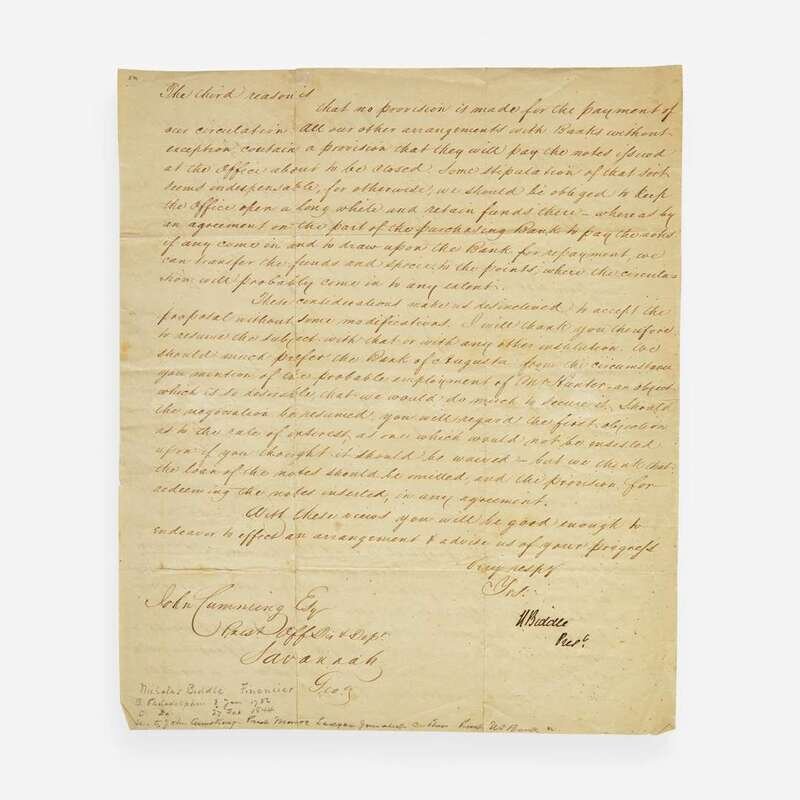 The third reason is
that no provision is made for the payment of
our circulation All our other arrangements with Banks without
exception contain a provision that they will pay the notes issued
at the Office about to be closed. Some stipulation of that sort
seems indespensable, for otherwise, we should be obliged to keep
the Office open a long while and retain funds there – where as by
an agreement on the part of the purchasing Bank to pay the notes
if any come in and to draw upon the Bank for repayment, we
can transfer the funds and specie to the points, where the circula-
tion will probably come in to any extent.
These considerations make us desinclined to accept the
proposal without some modifications. I will thank you therefore
to resume the subject with that or with any other institution. We
should much prefer the Bank of Augusta from the circumstance
you mention of the probable employment of Mr Hunter an object
which is so desirable, that we would do much to secure it. Should
the negociation be resumed, you will regard the first objection
as to the rate of interest, as one which would not be insisted
upon if you thought it should be waived – but we think that
the loan of the notes should be omitted, and the provision for
redeeming the notes inserted, in any agreement.
With these views you will be good enough to
endeavor to effect an arrangement & advise us of your progress
Very respy
Yrs:
N Biddle
Prest.
John Cumming Esq
Prest Off Dis & Dept.
Savannah
Geog
Nicholas Biddle Financier
B. Philadelphia 8 Jan 1786
D. Do. 27 Feb 1844
Sec to John Armstrong - Monroe Lawyer Journalist Pres. US Bank